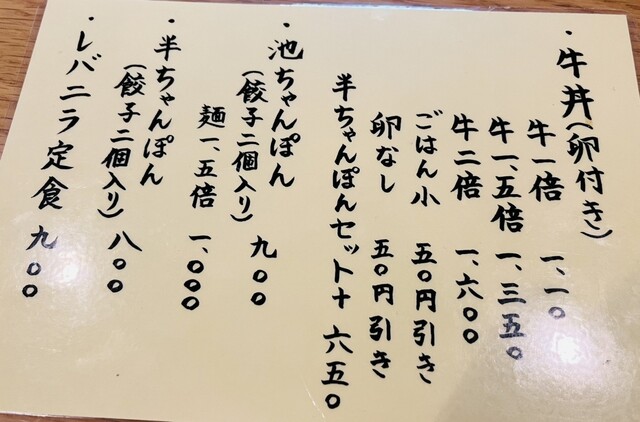 ・牛丼（卵付き）
牛一倍 一、一〇
牛一、五倍 一、三五〇
牛二倍 一、六〇〇
ごはん小 五〇円引き
卵なし 五〇円引き
半ちゃんぽんセット＋ 六五〇
・池ちゃんぽん
（餃子二個入り） 九〇〇
麺一、五倍 一、〇〇〇
・半ちゃんぽん
（餃子二個入り） 八〇〇
・レバニラ定食 九〇〇